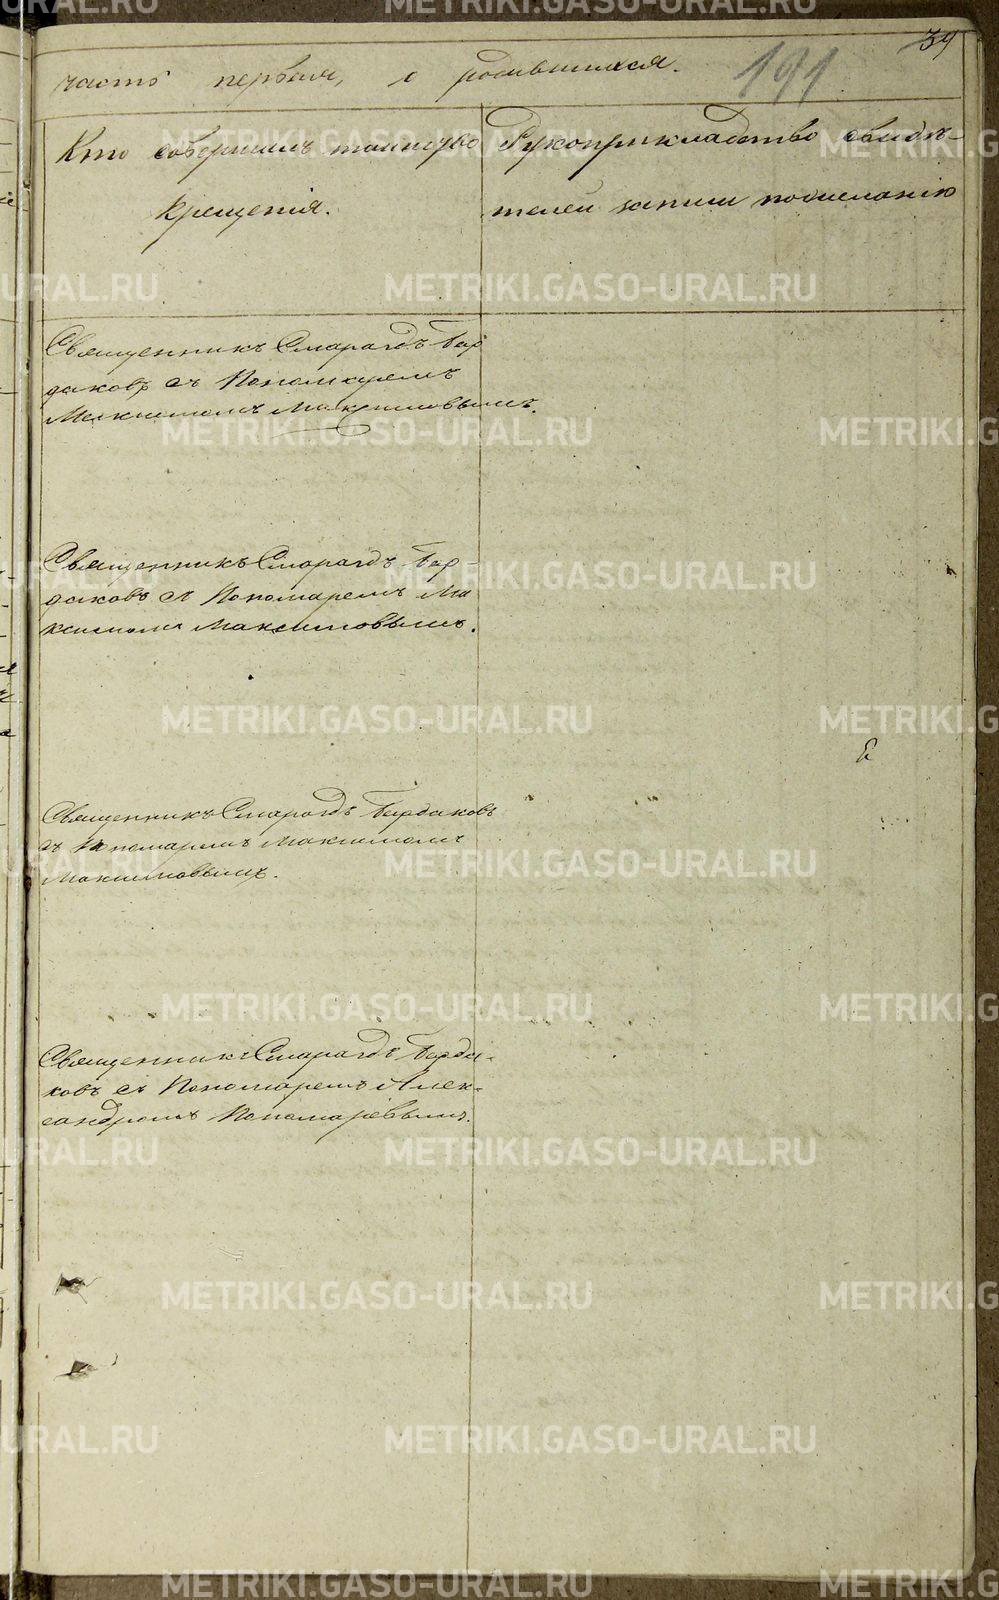 39
часть первая, о родившихся.
191
Кто совершалъ таинство
крещенія.
Рукоприкладство свидѣ-
телей записи по желанію
Священникъ Смарагдъ Бар
даковъ съ Пономаремъ
Максимомъ Максимовымъ.
Священникъ Смарагдъ Бар-
даковъ съ Пономаремъ Ма
ксимомъ Максимовымъ.
Священникъ Смарагдъ Бардаковъ
съ Пономаремъ Максимомъ
Максимовымъ.
Священникъ Смарагдъ Барда-
ковъ съ Пономаремъ Алек-
сандромъ Пономаревымъ.
METRIKI.GASO-URAL.RU